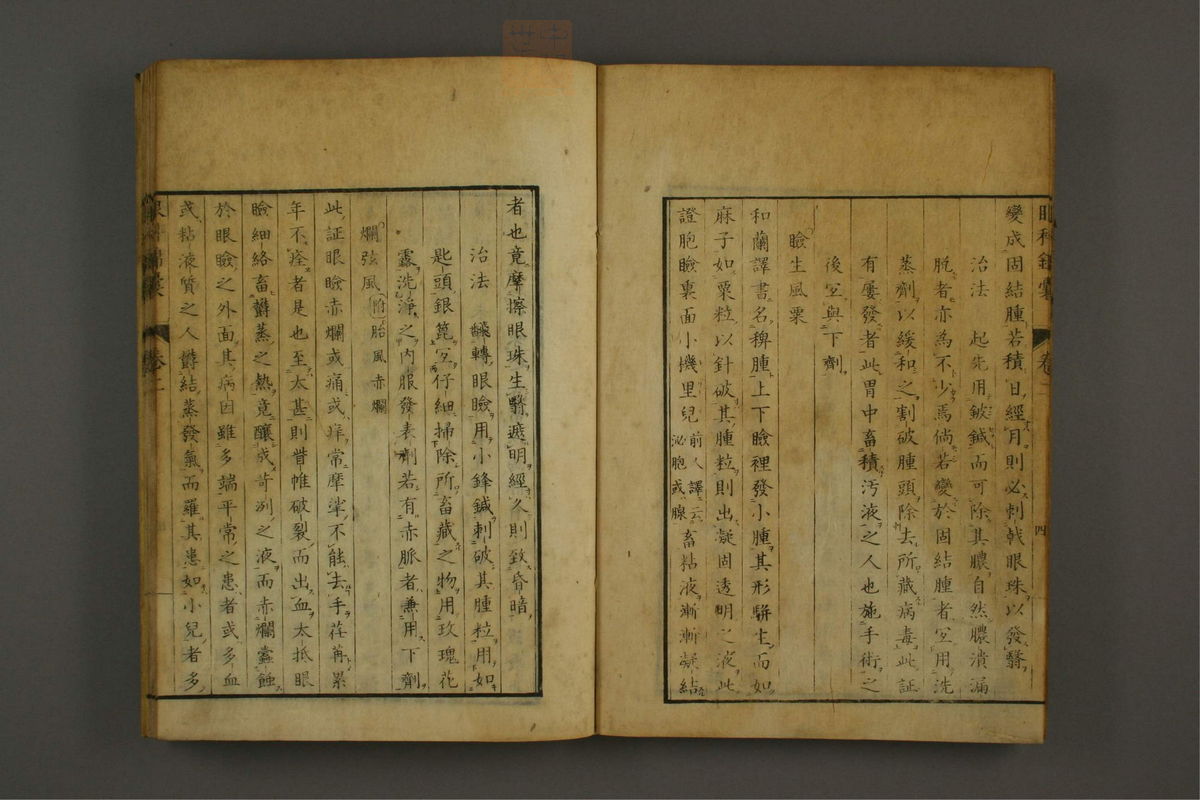 變成固結腫若積日經月則必刺戟眼珠以發翳
治法 起先用鈹鍼而可除其膿自然膿潰漏
脫者亦為不少焉倘若變於固結腫者宜用洗
蒸劑以緩和之割破腫頭除去所藏病毒此証
有屢發者此胃中畜積汚液之人也施手術之
後宜與下劑
瞼生風粟
和蘭譯書名稗腫上下瞼裡發小腫其形駢生而如
麻子如粟粒以針破其腫粒則出凝固透明之液此
證胞瞼裏面小機里兒前人譯云泌胞或腺畜粘液漸漸凝結
者也竟摩擦眼珠生翳遮明經久則致昏暗
治法 飜轉眼瞼用小鋒鍼刺破其腫粒用如
匙頭銀篦宜仔細掃除所畜藏之物用玫瑰花
露洗淨之内服發表劑若有赤脈者兼用下劑
爛弦風 附胎風赤爛
此証眼瞼赤爛或痛或痒常摩挲不能去手荏苒累
年不痊者是也至太甚則眥帷破裂而出血太抵眼
瞼細絡畜欝蒸之熱竟釀成苛冽之液而赤爛蠧蝕
於眼瞼之外面其病因雖多端平常之患者或多血
或粘液質之人欝結蒸發氣而羅其患如小兒者多
卷二
四